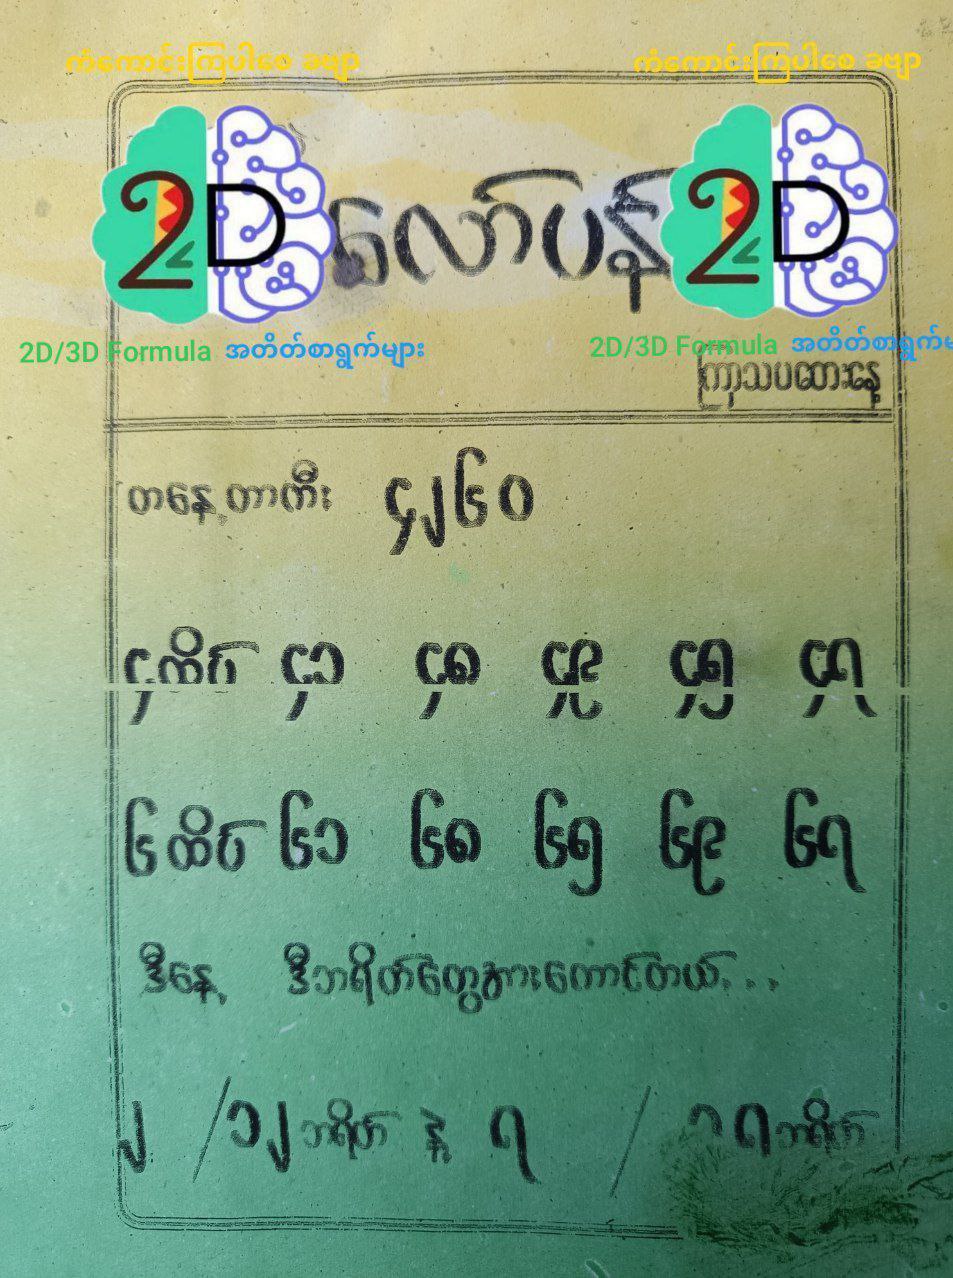 ကံကောင်းကြပါစေ ခဗျာ ကံကောင်းကြပါစေ ခဗျာ
2D လော်ပန် 2D
2D/3D Formula အတိတ်စာရွက်များ 2D/3D Formula အတိတ်စာရွက်မ
ကြာသပထေးနေ့
တနေ့တာကီး ၄၂၆၀
၄ထိပ် ၄၁ ၄၈ ၄၉ ၄၅ ၄၇
၆ထိပ် ၆၁ ၆၈ ၆၅ ၆၉ ၆၇
ဒီနေ့ ဒီဘရိတ်တွေအားကောင်တယ်...
၂ / ၁၂ ဘရိတ် နဲ့ ၇ / ၁၇ ဘရိတ်